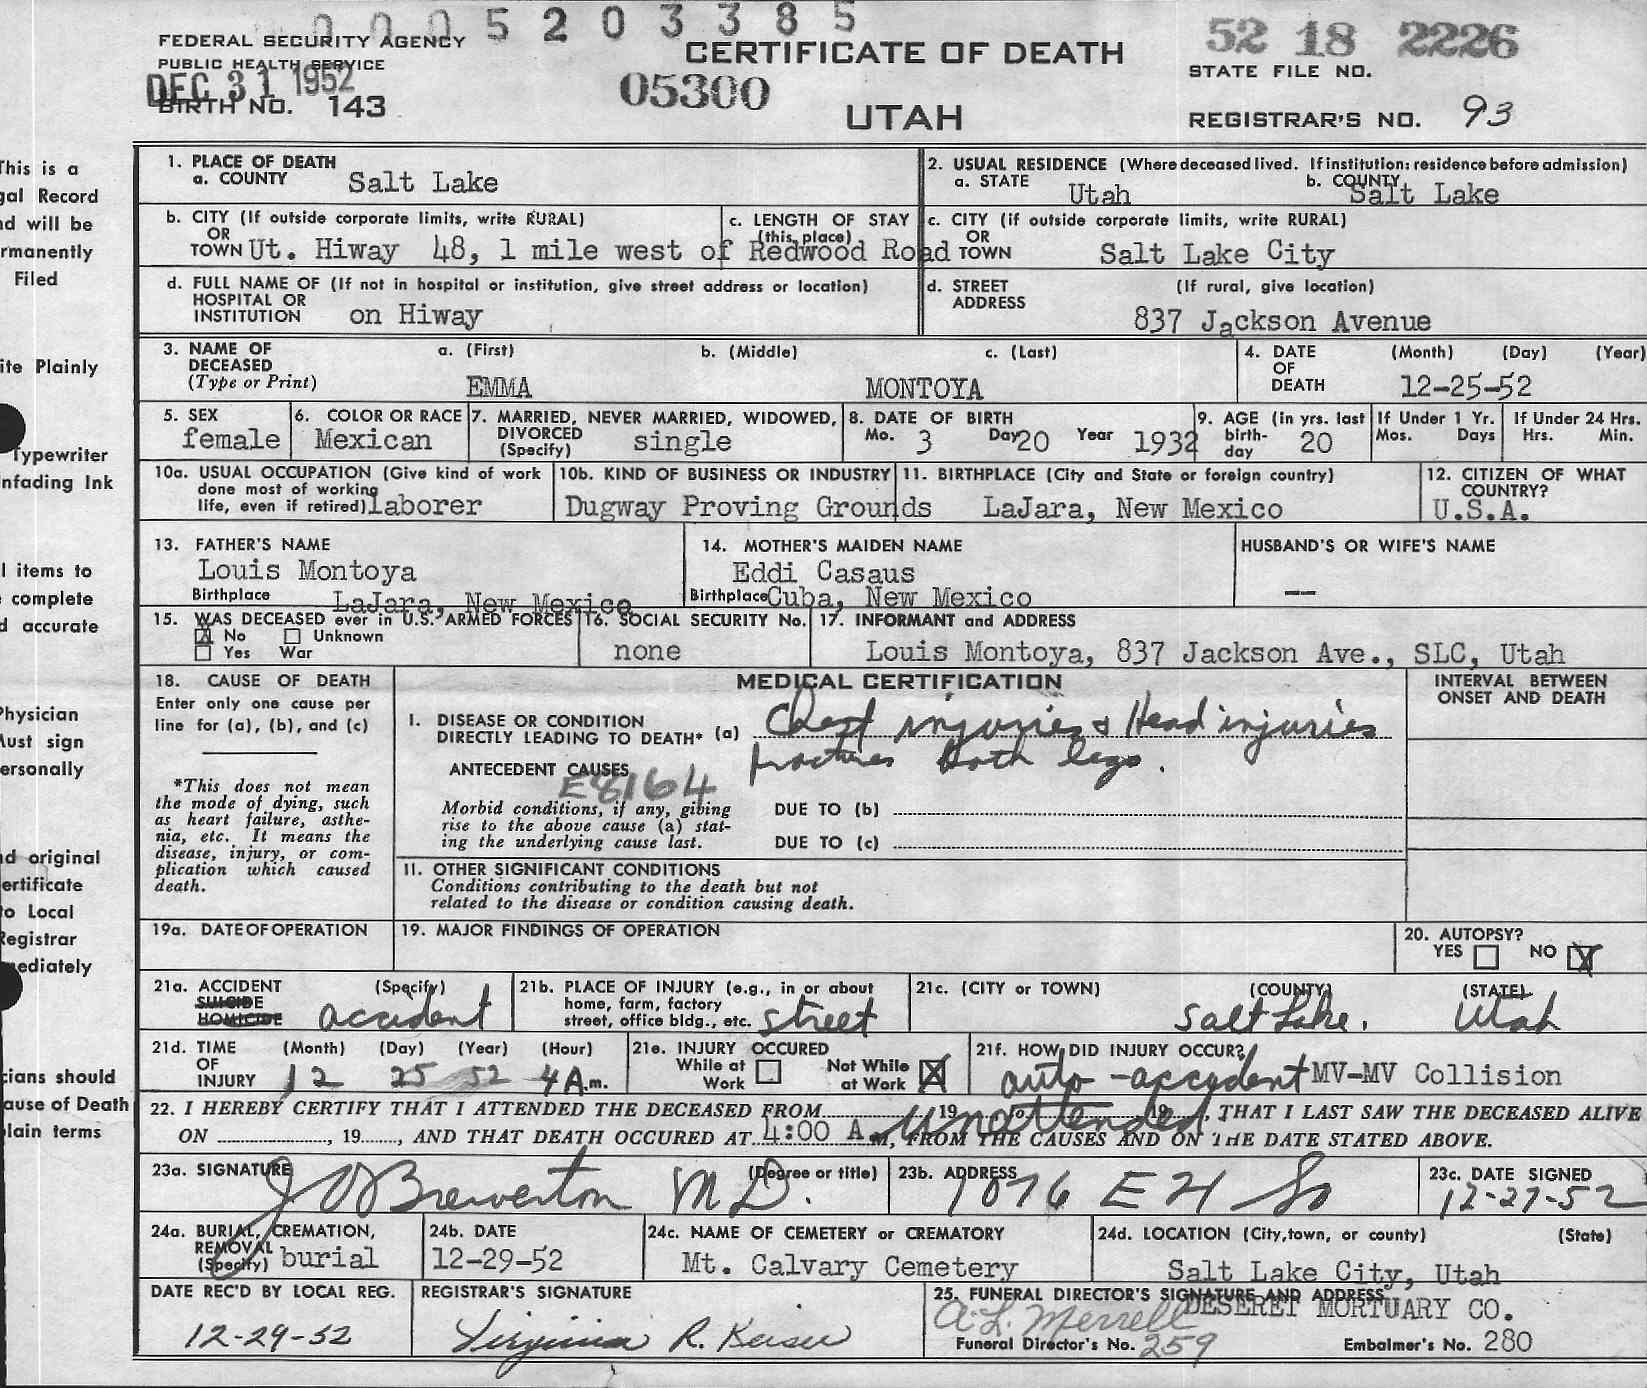 0005203385
FEDERAL SECURITY AGENCY
PUBLIC HEALTH SERVICE
DEC 31 1952
BIRTH NO. 143
CERTIFICATE OF DEATH
05300
UTAH
52 18 2226
STATE FILE NO.
REGISTRAR'S NO. 93
This is a
gal Record
nd will be
rmanently
Filed
ite Plainly
Typewriter
nfading Ink
l items to
complete
d accurate
Physician
Must sign
ersonally
nd original
ertificate
to Local
Registrar
mediately
cians should
ause of Death
lain terms
1. PLACE OF DEATH
a. COUNTY Salt Lake
2. USUAL RESIDENCE (Where deceased lived. If institution: residence before admission)
a. STATE Utah b. COUNTY Salt Lake
b. CITY (If outside corporate limits, write RURAL)
OR
TOWN Ut. Hiway 48, 1 mile west of Redwood Road
c. LENGTH OF STAY
(this place)
c. CITY (if outside corporate limits, write RURAL)
OR
TOWN Salt Lake City
d. FULL NAME OF (If not in hospital or institution, give street address or location)
HOSPITAL OR
INSTITUTION on Hiway
d. STREET (If rural, give location)
ADDRESS
837 Jackson Avenue
3. NAME OF a. (First) b. (Middle) c. (Last)
DECEASED
(Type or Print) EMMA MONTOYA
4. DATE (Month) (Day) (Year)
OF
DEATH 12-25-52
5. SEX
female
6. COLOR OR RACE
Mexican
7. MARRIED, NEVER MARRIED, WIDOWED,
DIVORCED
(Specify) single
8. DATE OF BIRTH
Mo. 3 Day 20 Year 1932
9. AGE (in yrs. last
birth-
day 20
If Under 1 Yr.
Mos. Days
If Under 24 Hrs.
Hrs. Min.
10a. USUAL OCCUPATION (Give kind of work
done most of working
life, even if retired) laborer
10b. KIND OF BUSINESS OR INDUSTRY
Dugway Proving Grounds
11. BIRTHPLACE (City and State or foreign country)
LaJara, New Mexico
12. CITIZEN OF WHAT
COUNTRY?
U.S.A.
13. FATHER'S NAME
Louis Montoya
Birthplace LaJara, New Mexico
14. MOTHER'S MAIDEN NAME
Eddi Casaus
Birthplace Cuba, New Mexico
HUSBAND'S OR WIFE'S NAME
--
15. WAS DECEASED ever in U.S. ARMED FORCES
No Unknown
Yes War
16. SOCIAL SECURITY No.
none
17. INFORMANT and ADDRESS
Louis Montoya, 837 Jackson Ave., SLC, Utah
18. CAUSE OF DEATH
Enter only one cause per
line for (a), (b), and (c)
*This does not mean
the mode of dying, such
as heart failure, asthe-
nia, etc. It means the
disease, injury, or com-
plication which caused
death.
MEDICAL CERTIFICATION
INTERVAL BETWEEN
ONSET AND DEATH
I. DISEASE OR CONDITION
DIRECTLY LEADING TO DEATH* (a) Chest injuries & Head injuries
fractures both legs.
ANTECEDENT CAUSES
E8164
Morbid conditions, if any, giving
rise to the above cause (a) stat-
ing the underlying cause last.
DUE TO (b)
DUE TO (c)
11. OTHER SIGNIFICANT CONDITIONS
Conditions contributing to the death but not
related to the disease or condition causing death.
19a. DATE OF OPERATION
19. MAJOR FINDINGS OF OPERATION
20. AUTOPSY?
YES NO X
21a. ACCIDENT (Specify)
SUICIDE
HOMICIDE accident
21b. PLACE OF INJURY (e.g., in or about
home, farm, factory
street, office bldg., etc. street
21c. (CITY or TOWN) (COUNTY) (STATE)
Salt Lake. Utah
21d. TIME (Month) (Day) (Year) (Hour)
OF
INJURY 12 25 52 4 A.m.
21e. INJURY OCCURED
While at Work
Not While at Work X
21f. HOW DID INJURY OCCUR?
auto-accident MV-MV Collision
22. I HEREBY CERTIFY THAT I ATTENDED THE DECEASED FROM 19 to 19, THAT I LAST SAW THE DECEASED ALIVE
unattended
ON , 19 , AND THAT DEATH OCCURED AT 4:00 A.M, FROM THE CAUSES AND ON THE DATE STATED ABOVE.
23a. SIGNATURE (Degree or title)
J O Brewerton M D.
23b. ADDRESS
1076 E 21 So
23c. DATE SIGNED
12-27-52
24a. BURIAL, CREMATION,
REMOVAL
(Specify) burial
24b. DATE
12-29-52
24c. NAME OF CEMETERY or CREMATORY
Mt. Calvary Cemetery
24d. LOCATION (City, town, or county) (State)
Salt Lake City, Utah
DATE REC'D BY LOCAL REG.
12-29-52
REGISTRAR'S SIGNATURE
Virginia R. Keiser
25. FUNERAL DIRECTOR'S SIGNATURE AND ADDRESS
A.L. Merrell DESERET MORTUARY CO.
Funeral Director's No. 259 Embalmer's No. 280